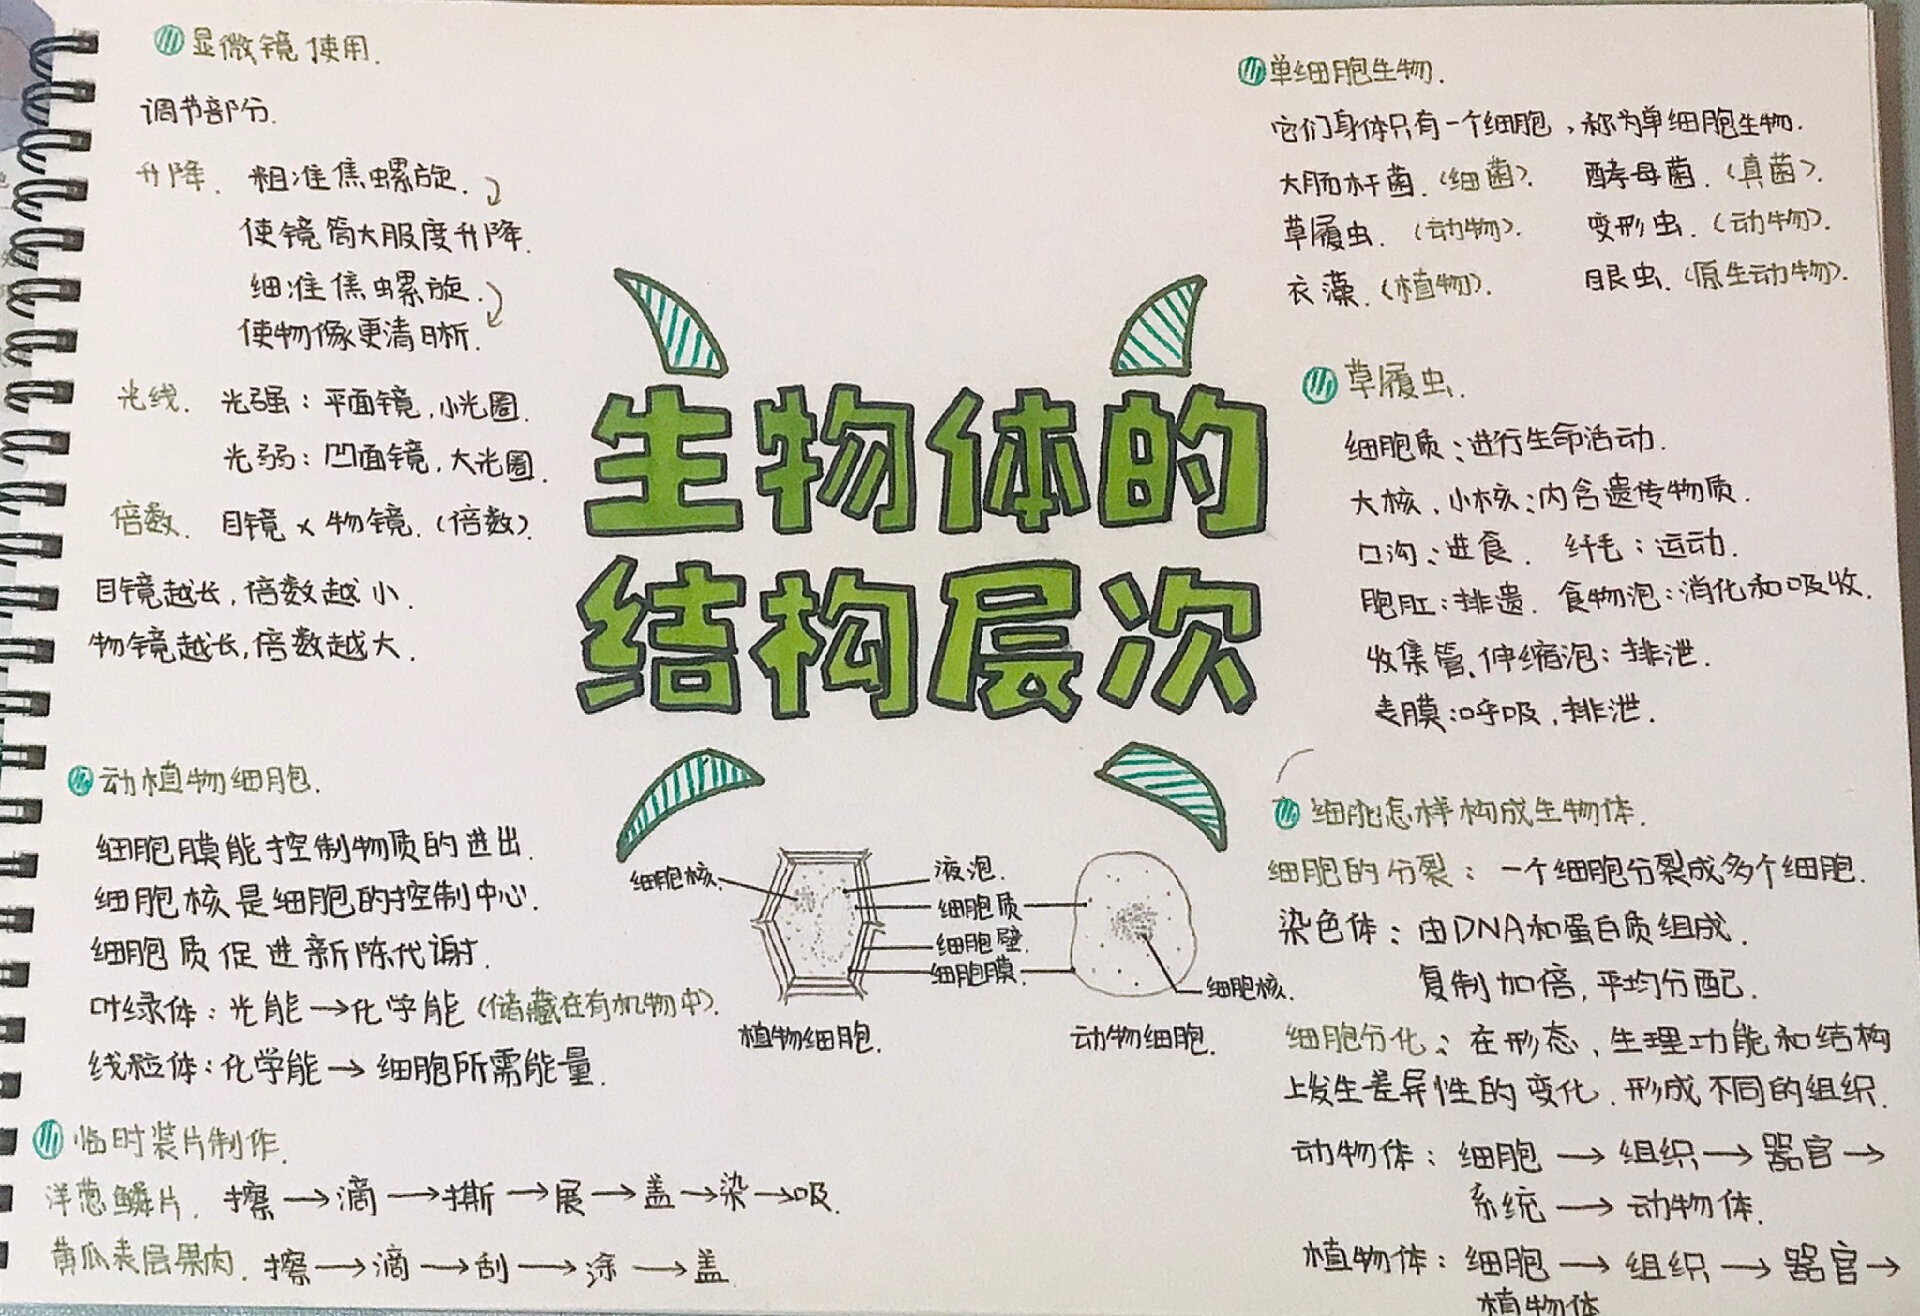 显微镜使用.
调节部分.
升降. 粗准焦螺旋.
使镜筒大服度升降.
细准焦螺旋.
使物像更清晰.
光线. 光强：平面镜,小光圈.
光弱：凹面镜,大光圈.
倍数. 目镜×物镜.(倍数).
目镜越长,倍数越小.
物镜越长,倍数越大.
动植物细胞.
细胞膜能控制物质的进出.
细胞核是细胞的控制中心.
细胞质促进新陈代谢.
叶绿体：光能→化学能(储藏在有机物中).
线粒体：化学能→细胞所需能量.
临时装片制作.
洋葱鳞片. 擦→滴→撕→展→盖→染→吸.
黄瓜表层果肉. 擦→滴→刮→涂→盖.
生物体的
结构层次
细胞核.
液泡.
细胞质
细胞壁.
细胞膜.
细胞核.
植物细胞.
动物细胞.
单细胞生物.
它们身体只有一个细胞,称为单细胞生物.
大肠杆菌.(细菌). 酵母菌.(真菌).
草履虫.(动物). 变形虫.(动物).
衣藻.(植物). 眼虫.(原生动物).
草履虫.
细胞质:进行生命活动.
大核、小核:内含遗传物质.
口沟:进食. 纤毛:运动.
胞肛:排遗. 食物泡:消化和吸收.
收集管、伸缩泡:排泄.
表膜:呼吸,排泄.
细胞怎样构成生物体.
细胞的分裂：一个细胞分裂成多个细胞.
染色体：由DNA和蛋白质组成.
复制加倍,平均分配.
细胞分化:在形态、生理功能和结构
上发生差异性的变化.形成不同的组织.
动物体：细胞→组织→器官→
系统→动物体.
植物体：细胞→组织→器官→
植物体